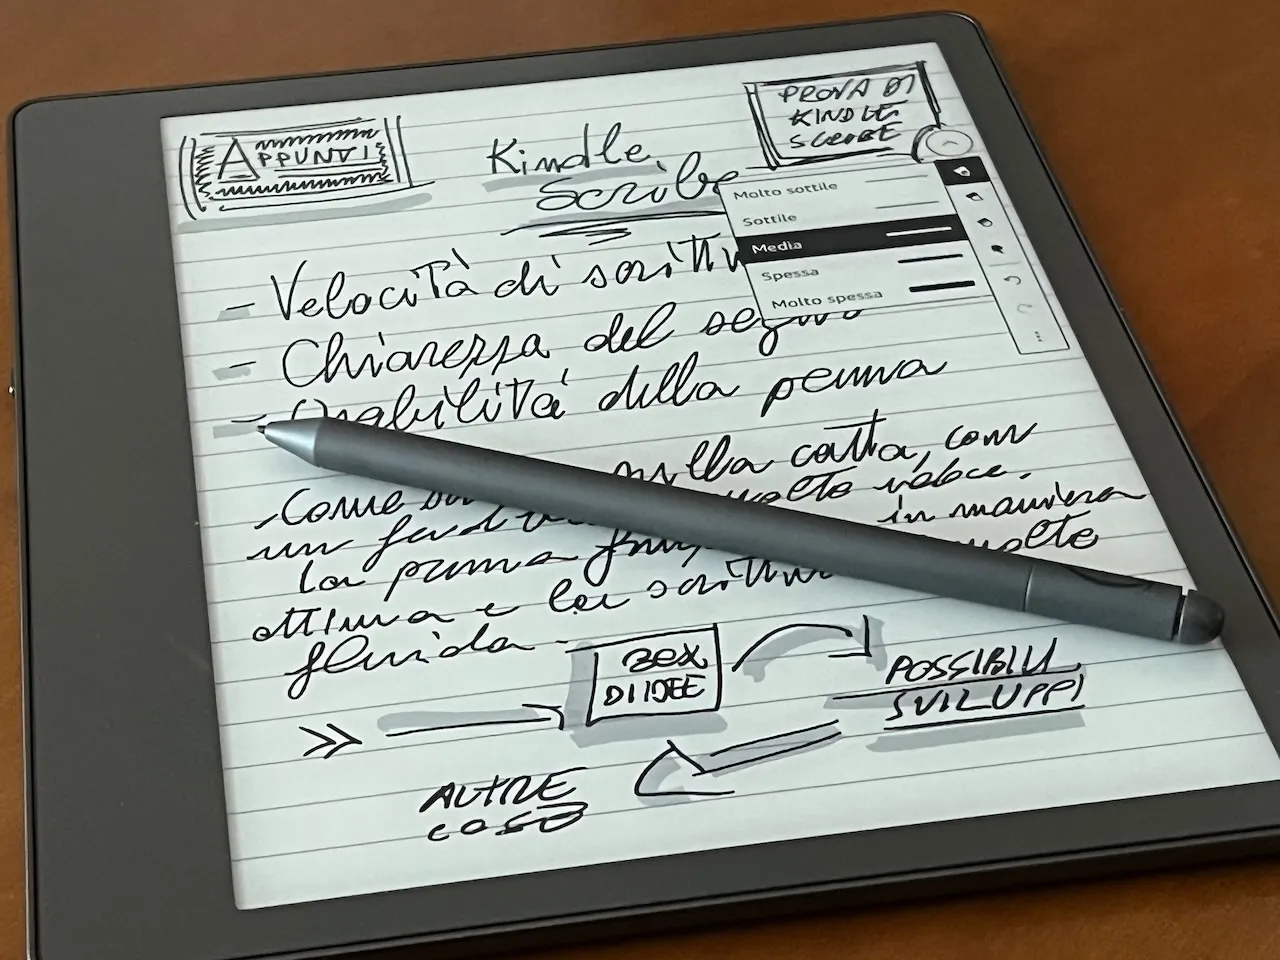 APPUNTI
Kindle
Scribe
PROVA DI
KINDLE
SCRIBE
Molto sottile
Sottile
Media
Spessa
Molto spessa
- Velocità di
- Chiarezza del
- della penna
Come sulla carta, con
un molto veloce.
la penna in maniera
ottima e la molte
fluida
BOX
DI IDEE
POSSIBILI
SVILUPPI
ALTRE
COSE